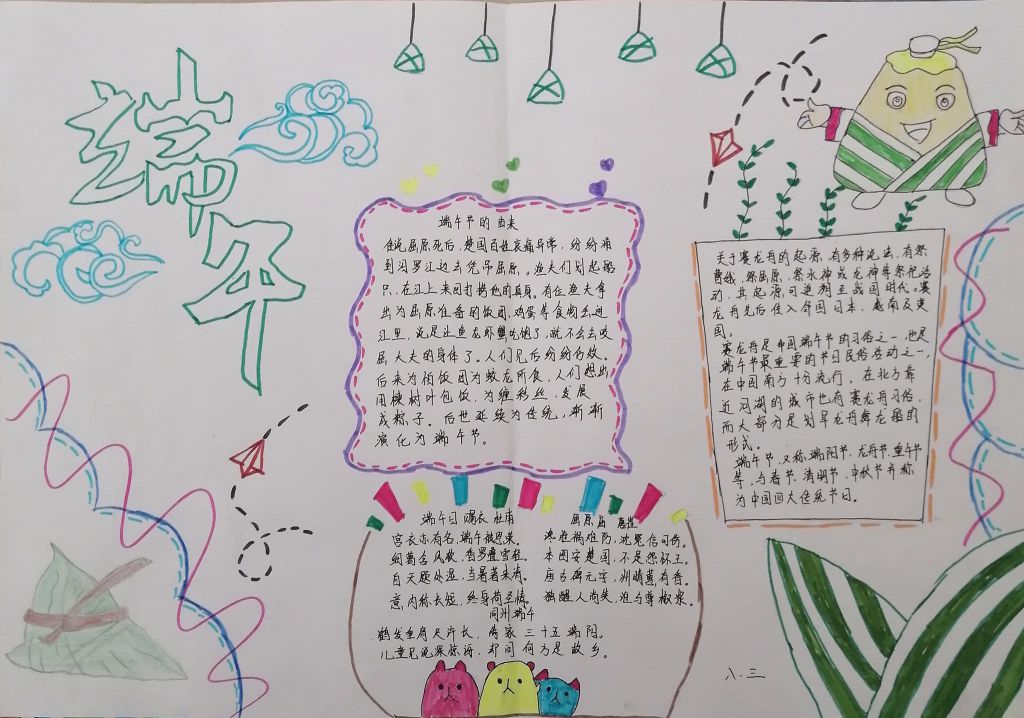 端午
端午节的由来
传说屈原死后,楚国百姓哀痛异常,纷纷涌
到汨罗江边去凭吊屈原。渔夫们划起船
只,在江上来回打捞他的真身。有位渔夫拿
出为屈原准备的饭团,鸡蛋等食物丢进
江里,说是让鱼龙虾蟹吃饱了,就不会去咬
屈大夫的身体了。人们见后纷纷仿效。
后来为怕饭团为蛟龙所食,人们想出
用楝树叶包饭,为缠彩丝,发展
成粽子。后世延续为传统,渐渐
演化为端午节。
关于赛龙舟的起源,有多种说法,有祭
曹娥,祭屈原,祭水神或龙神等祭祀活
动,其起源可追溯至战国时代。赛
龙舟先后传入邻国日本,越南及英
国。
赛龙舟是中国端午节的习俗之一,也是
端午节最重要的节日民俗活动之一,
在中国南方十分流行,在北方靠
近河湖的城市也有赛龙舟习俗,
而大部分是划旱龙舟舞龙船的
形式。
端午节,又称端阳节,龙舟节,重午节
等,与春节,清明节,中秋节并称
为中国四大传统节日。
端午日赐衣 杜甫
宫衣亦有名,端午被恩荣。
细葛含风软,香罗叠雪轻。
自天题处湿,当暑著来清。
意内称长短,终身荷圣情。
屈原庙
谗胜祸难防,沈冤信可伤。
本图安楚国,不是怨怀王。
庙古碑无字,洲晴蕙有香。
独醒人尚笑,谁与尊椒浆。
同州端午
鹤发垂肩尺许长,离家三十五端阳。
儿童见说深惊讶,却问何方是故乡。
八.三